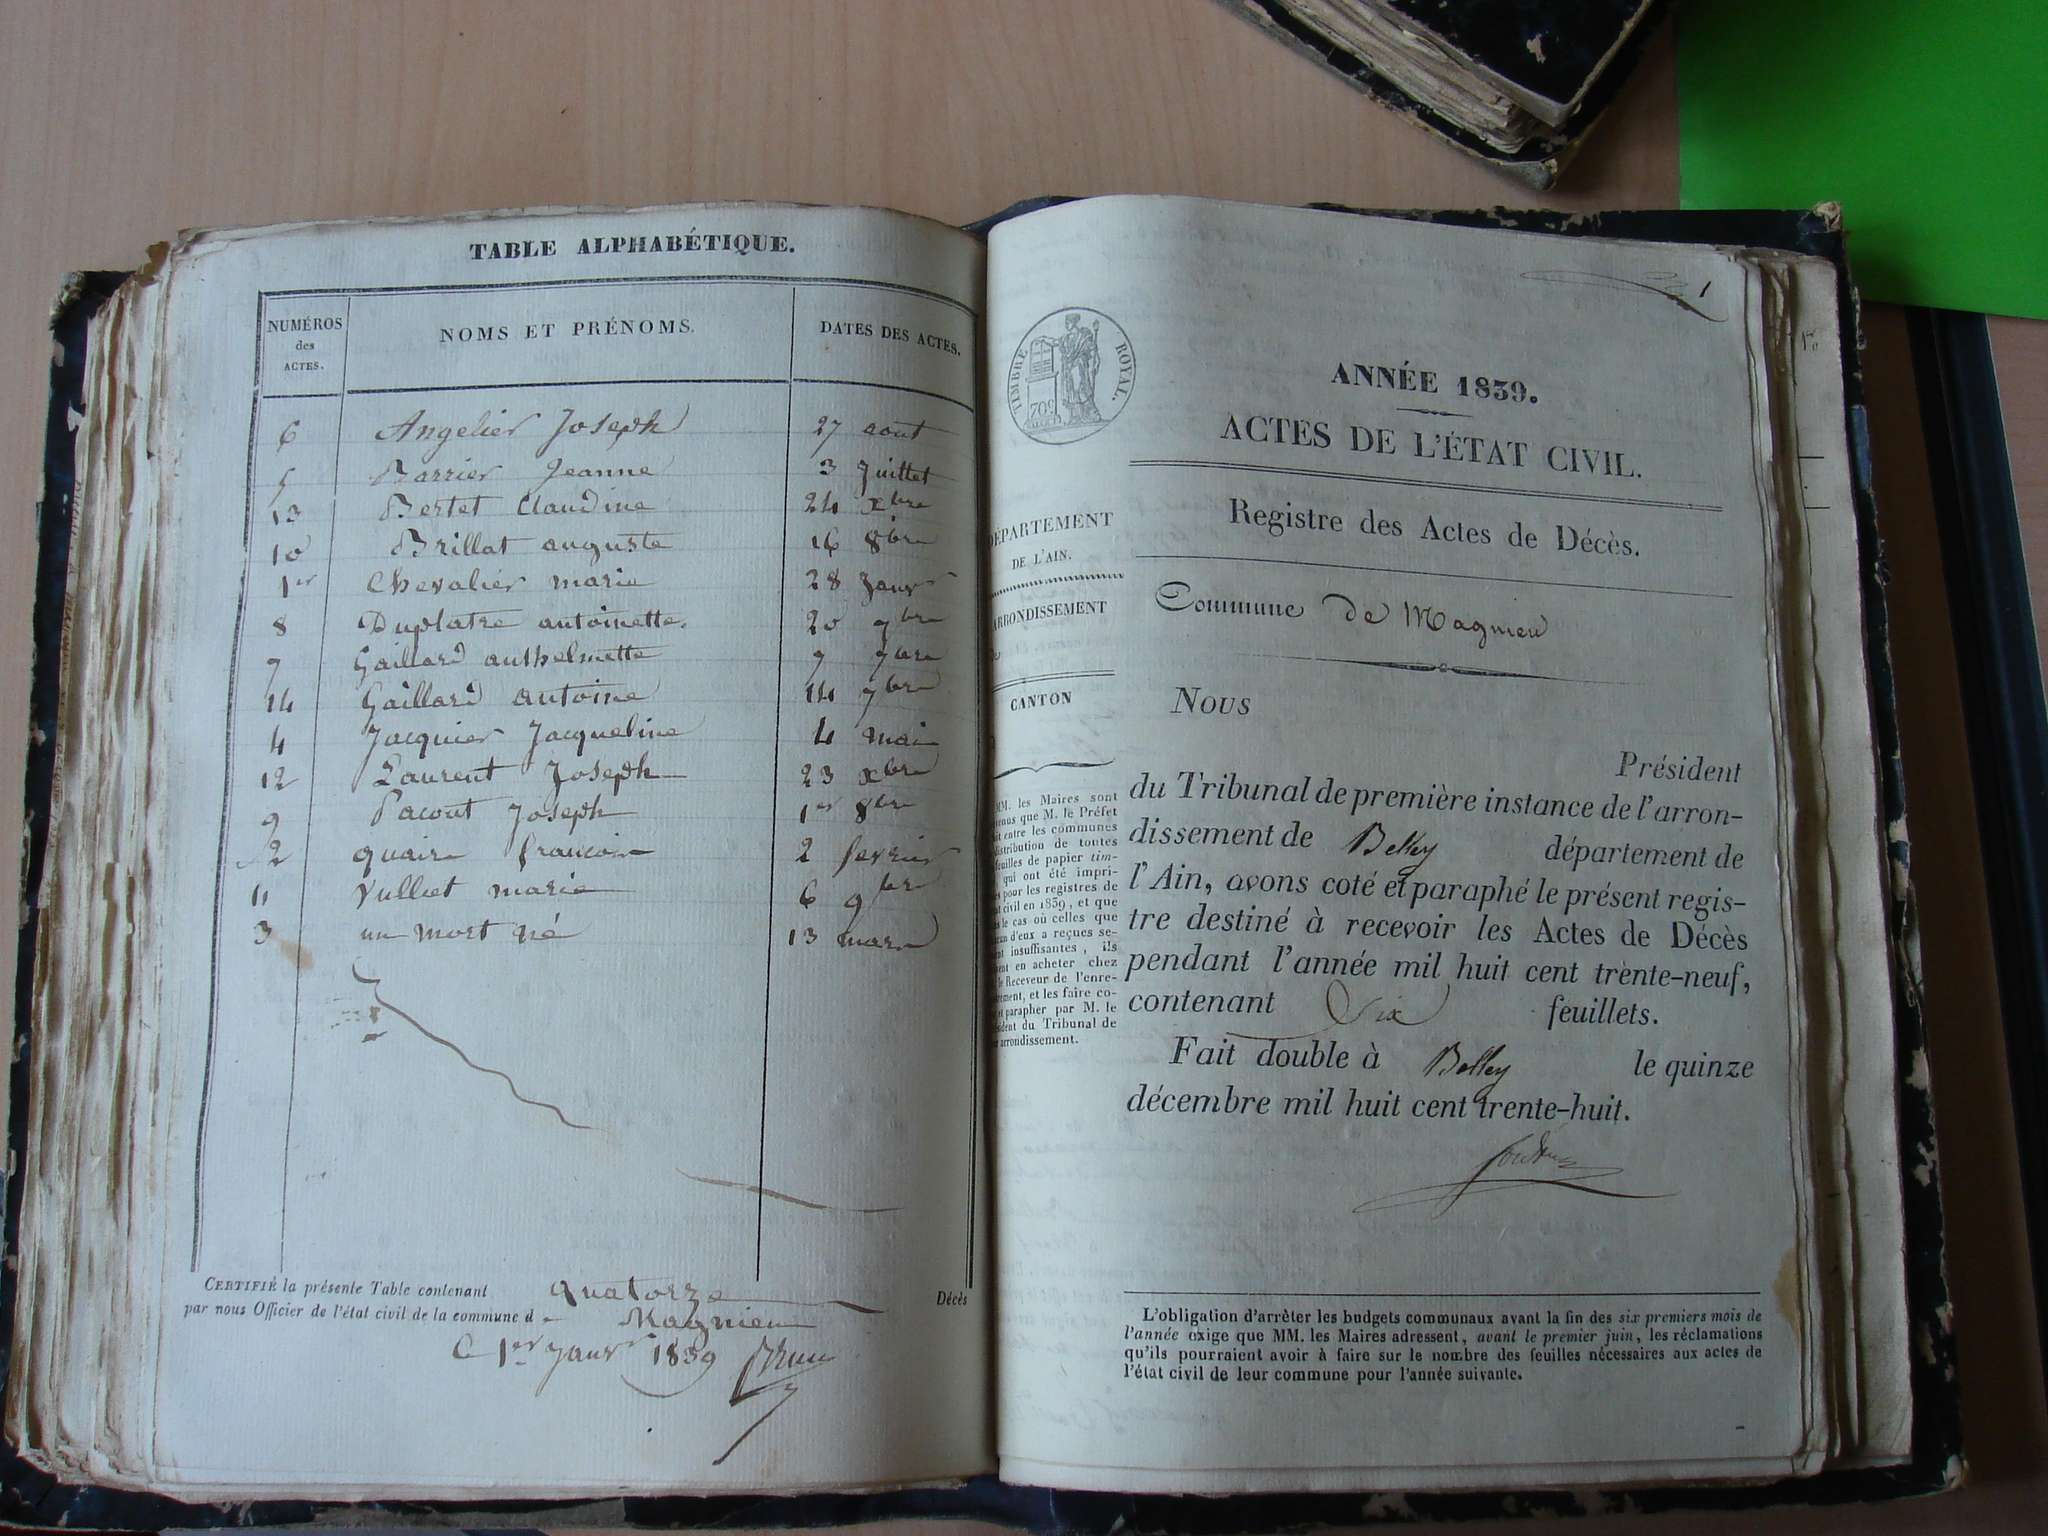 TABLE ALPHABÉTIQUE.
NUMÉROS des ACTES. NOMS ET PRÉNOMS. DATES DES ACTES.
6 Angelier Joseph 27 aout
5 Barrier Jeanne 3 Juillet
13 Bertet Claudine 24 xbre
10 Brillat auguste 16 8bre
1er Chevalier marie 28 Janvr
8 Duplatre antoinette 20 7bre
7 Gaillard anthelmette 9 7bre
14 Gaillard antoine 14 7bre
4 Jacquier Jacqueline 4 mai
12 Laurent Joseph 23 xbre
9 Pacout Joseph 1er 8bre
2 quair francois 2 fevrier
11 Vulliet marie 6 9bre
3 un mort né 13 mars
CERTIFIÉ la présente Table contenant quatorze Décès
par nous Officier de l'état civil de la commune d Magnieu
Ce 1er Janvr 1839
1
TIMBRE ROYAL.
ANNÉE 1839.
ACTES DE L'ÉTAT CIVIL.
Registre des Actes de Décès.
DÉPARTEMENT
DE L'AIN.
ARRONDISSEMENT
CANTON
Commune de Magnieu
MM. les Maires sont
que M. le Préfet
entre les communes
distribution de toutes
feuilles de papier tim-
qui ont été impri-
pour les registres de
civil en 1839, et que
le cas où celles que
d'eux a reçues se-
insuffisantes, ils
en acheter chez
le Receveur de l'enre-
et les faire co-
parapher par M. le
du Tribunal de
arrondissement.
Nous
Président
du Tribunal de première instance de l'arron-
dissement de Belley département de
l'Ain, avons coté et paraphé le présent regis-
tre destiné à recevoir les Actes de Décès
pendant l'année mil huit cent trente-neuf,
contenant Six feuillets.
Fait double à Belley le quinze
décembre mil huit cent trente-huit.
L'obligation d'arrêter les budgets communaux avant la fin des six premiers mois de
l'année exige que MM. les Maires adressent, avant le premier juin, les réclamations
qu'ils pourraient avoir à faire sur le nombre des feuilles nécessaires aux actes de
l'état civil de leur commune pour l'année suivante.